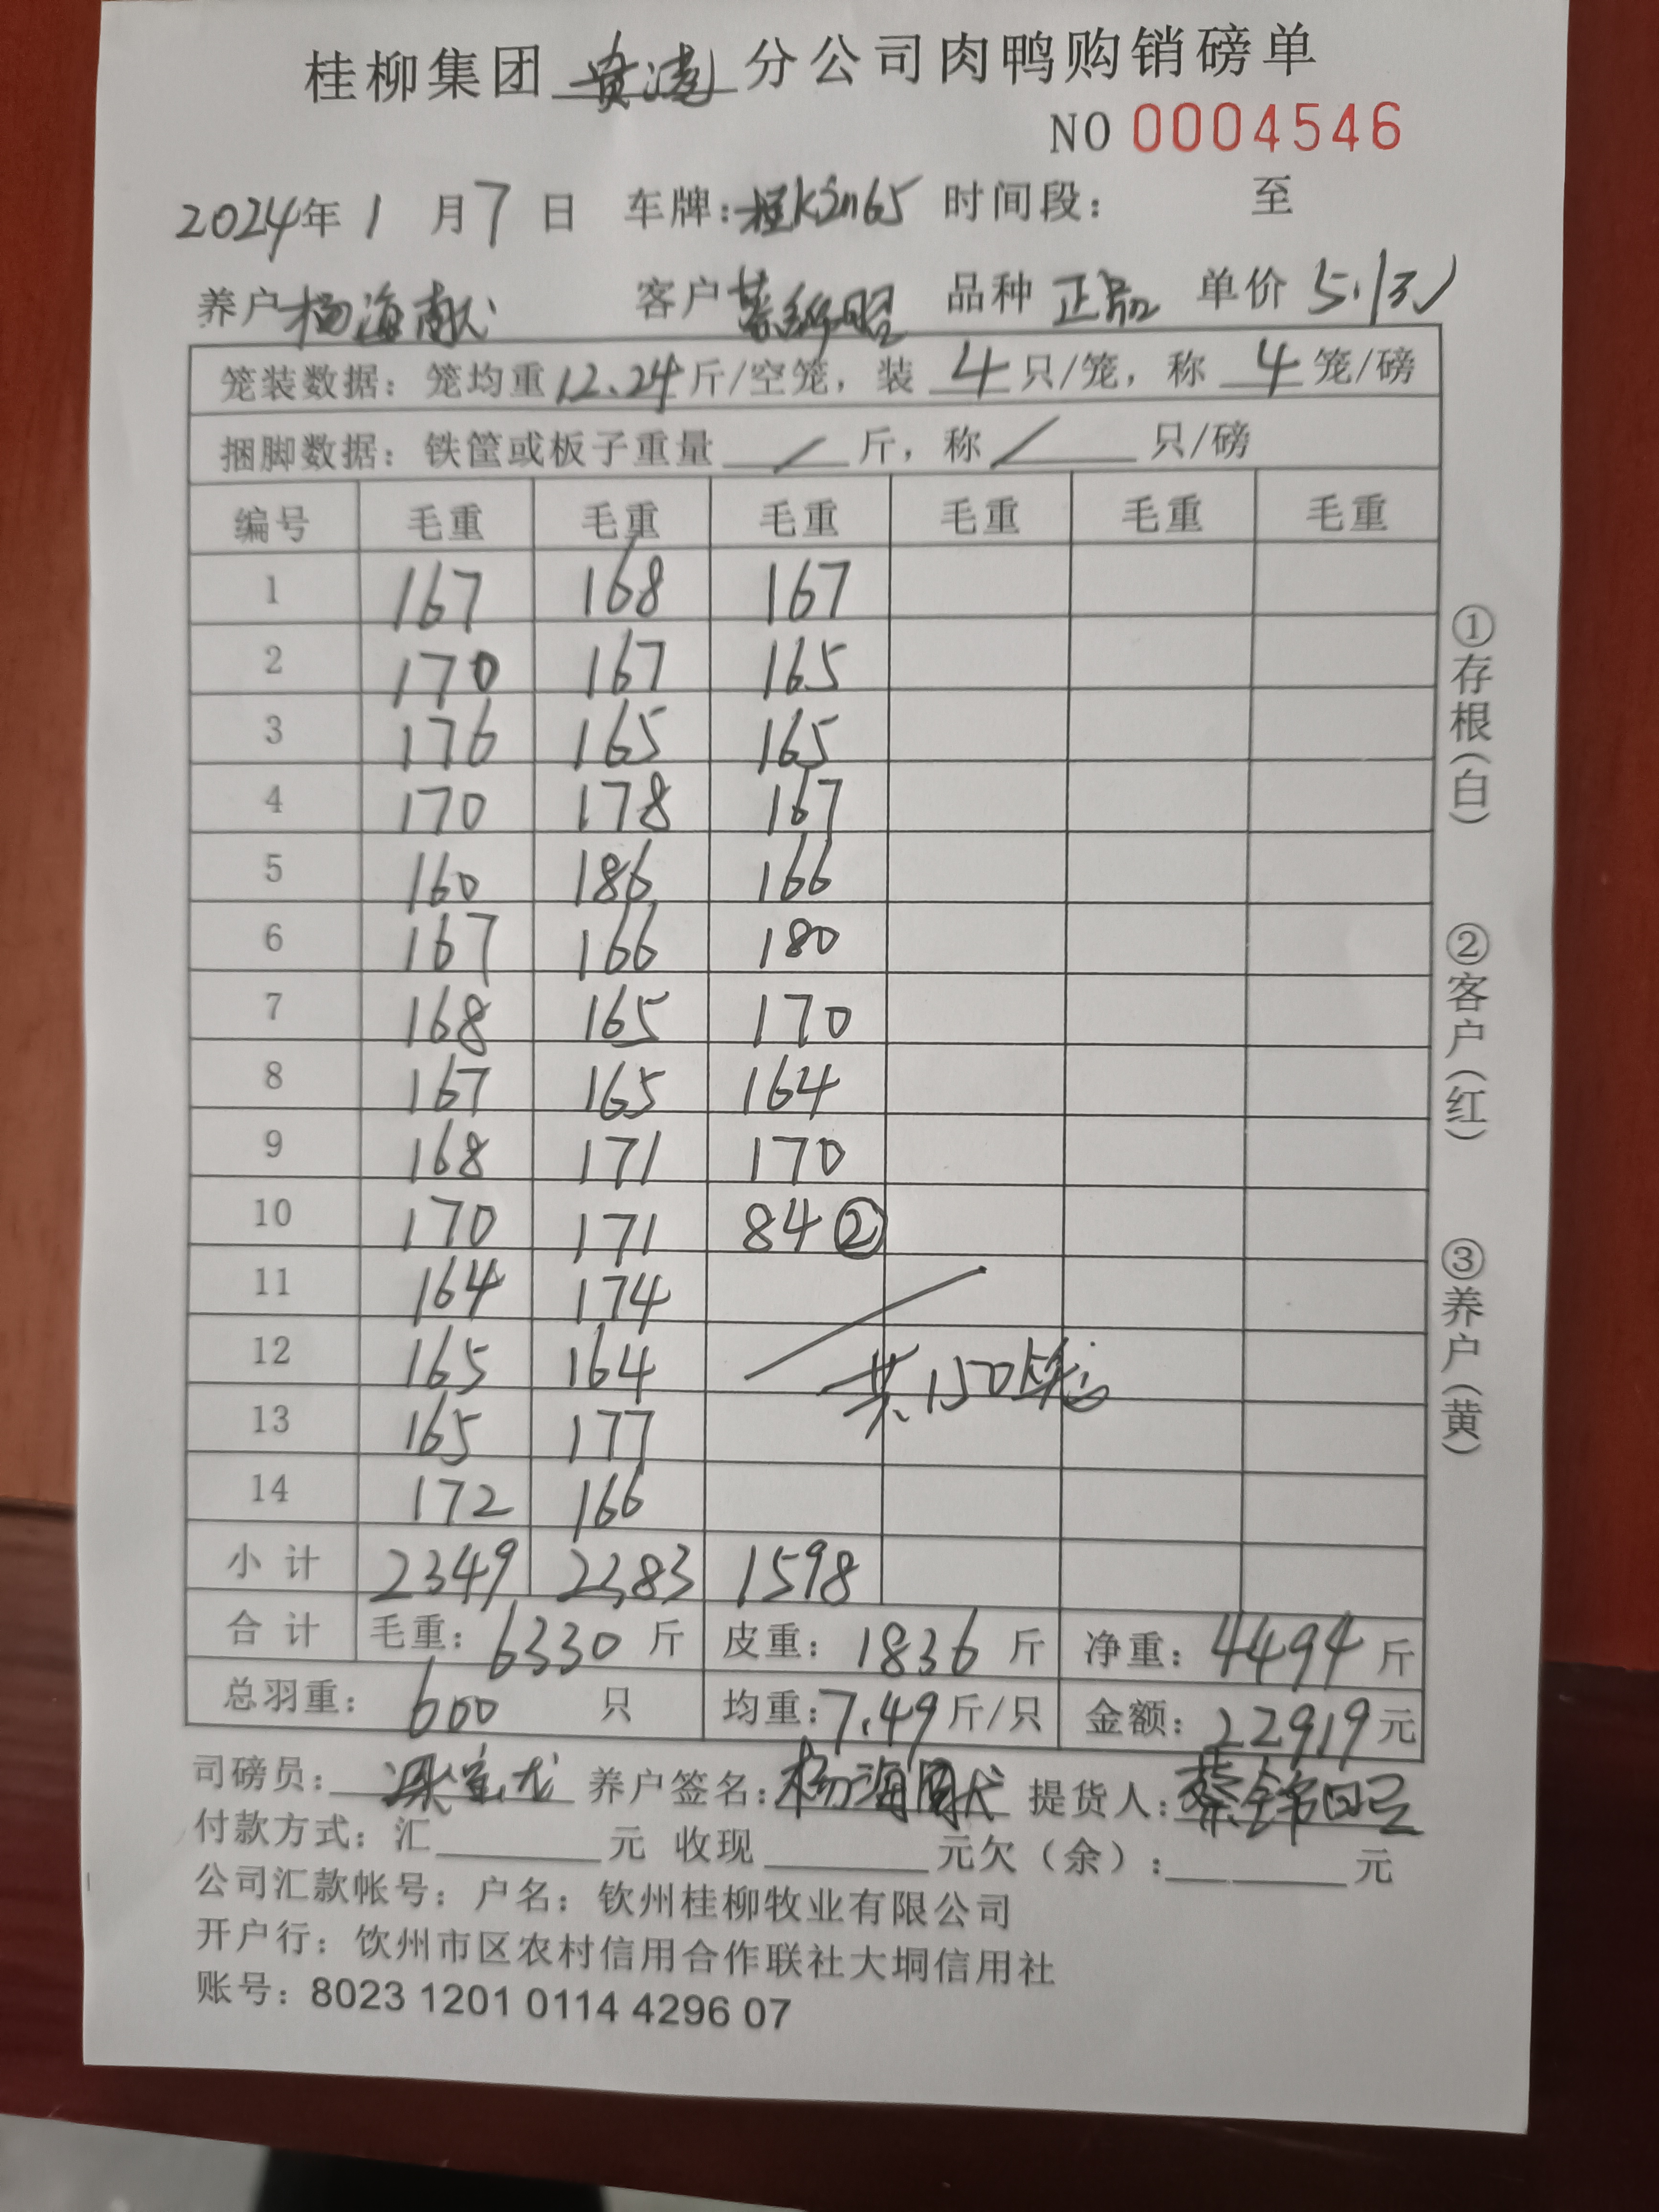 桂柳集团 黄凌 分公司肉鸭购销磅单
NO 0004546
2024年 1 月 7 日 车牌: 时间段: 至
养户 杨海献 客户 蔡锦昭 品种 正品 单价 5.1元
笼装数据: 笼均重 12.24 斤/空笼, 装 4 只/笼, 称 4 笼/磅
捆脚数据: 铁筐或板子重量 / 斤, 称 / 只/磅
编号 毛重 毛重 毛重 毛重 毛重 毛重
1 167 168 167
2 170 167 165
3 176 165 165
4 170 178 167
5 160 186 166
6 167 166 180
7 168 165 170
8 167 165 164
9 168 171 170
10 170 171 84 ②
11 164 174
12 165 164 共150笼
13 165 177
14 172 166
小计 2349 2383 1598
合计 毛重: 6330 斤 皮重: 1836 斤 净重: 4494 斤
总羽重: 600 只 均重: 7.49 斤/只 金额: 22919 元
①存根(白) ②客户(红) ③养户(黄)
司磅员: 养户签名: 杨海献 提货人: 蔡锦昭
付款方式: 汇 元 收现 元欠(余): 元
公司汇款帐号: 户名: 钦州桂柳牧业有限公司
开户行: 饮州市区农村信用合作联社大垌信用社
账号: 8023 1201 0114 4296 07